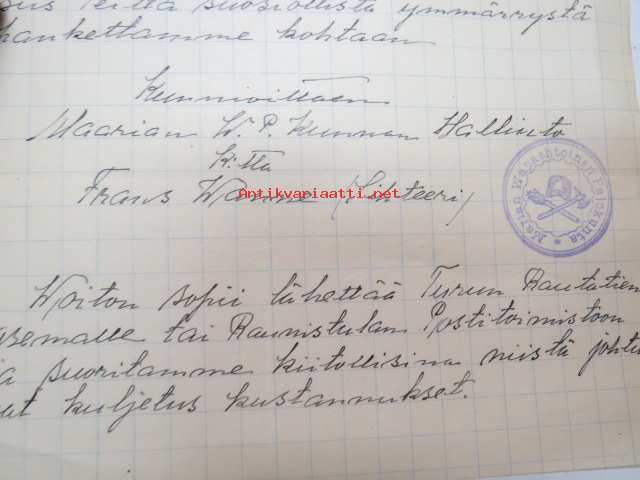 Teiltä suosiollista ymmärrystä
hankettamme kohtaan
Kunnioittaen
Maarian W. P. Kunnan Hallinto
Frans (Sihteeri)
Antikvariaatti.net
Marian Wapaehtoinen Palokunta
Woiton sopii lähettää Turun Rautatien
asemalle tai Raunistulan Postitoimistoon
ja suoritamme kiitollisina niistä johtu
kuljetus kustannukset.